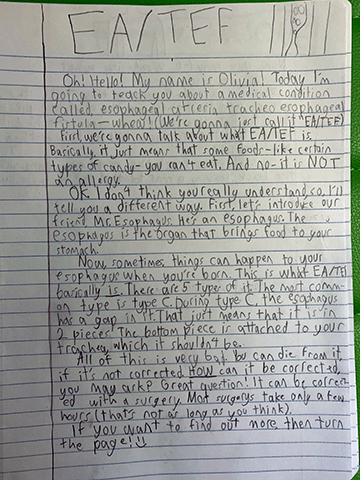 EA/TEF
Oh! Hello! My name is Olivia! Today I'm
going to teach you about a medical condition
called esophageal atresia tracheo esophageal
fistula—whew! (We're gonna just call it "EA/TEF)
First, we're gonna talk about what EA/TEF is.
Basically it just means that some foods-like certain
types of candy-you can't eat. And no-it is NOT
an allergy.
OK I don't think you really understand so, I'll
tell you a different way. First, let's introduce our
friend Mr. Esophagus. He's an esophagus. The
esophagus is the organ that brings food to your
stomach.
Now, sometimes things can happen to your
esophagus when you're born. This is what EA/TEF
basically is. There are 5 types of it. The most comm-
on type is type C. During type C, the esophagus
has a gap in it. That just means that it is in
2 pieces! The bottom piece is attached to your
trachea, which it shouldn't be.
All of this is very bad. You can die from it,
if it's not corrected. How can it be corrected,
you may ask? Great question! It can be correct-
ed with a surgery. Most surgerys take only a few
hours (that's not as long as you think).
If you want to find out more then turn
the page!